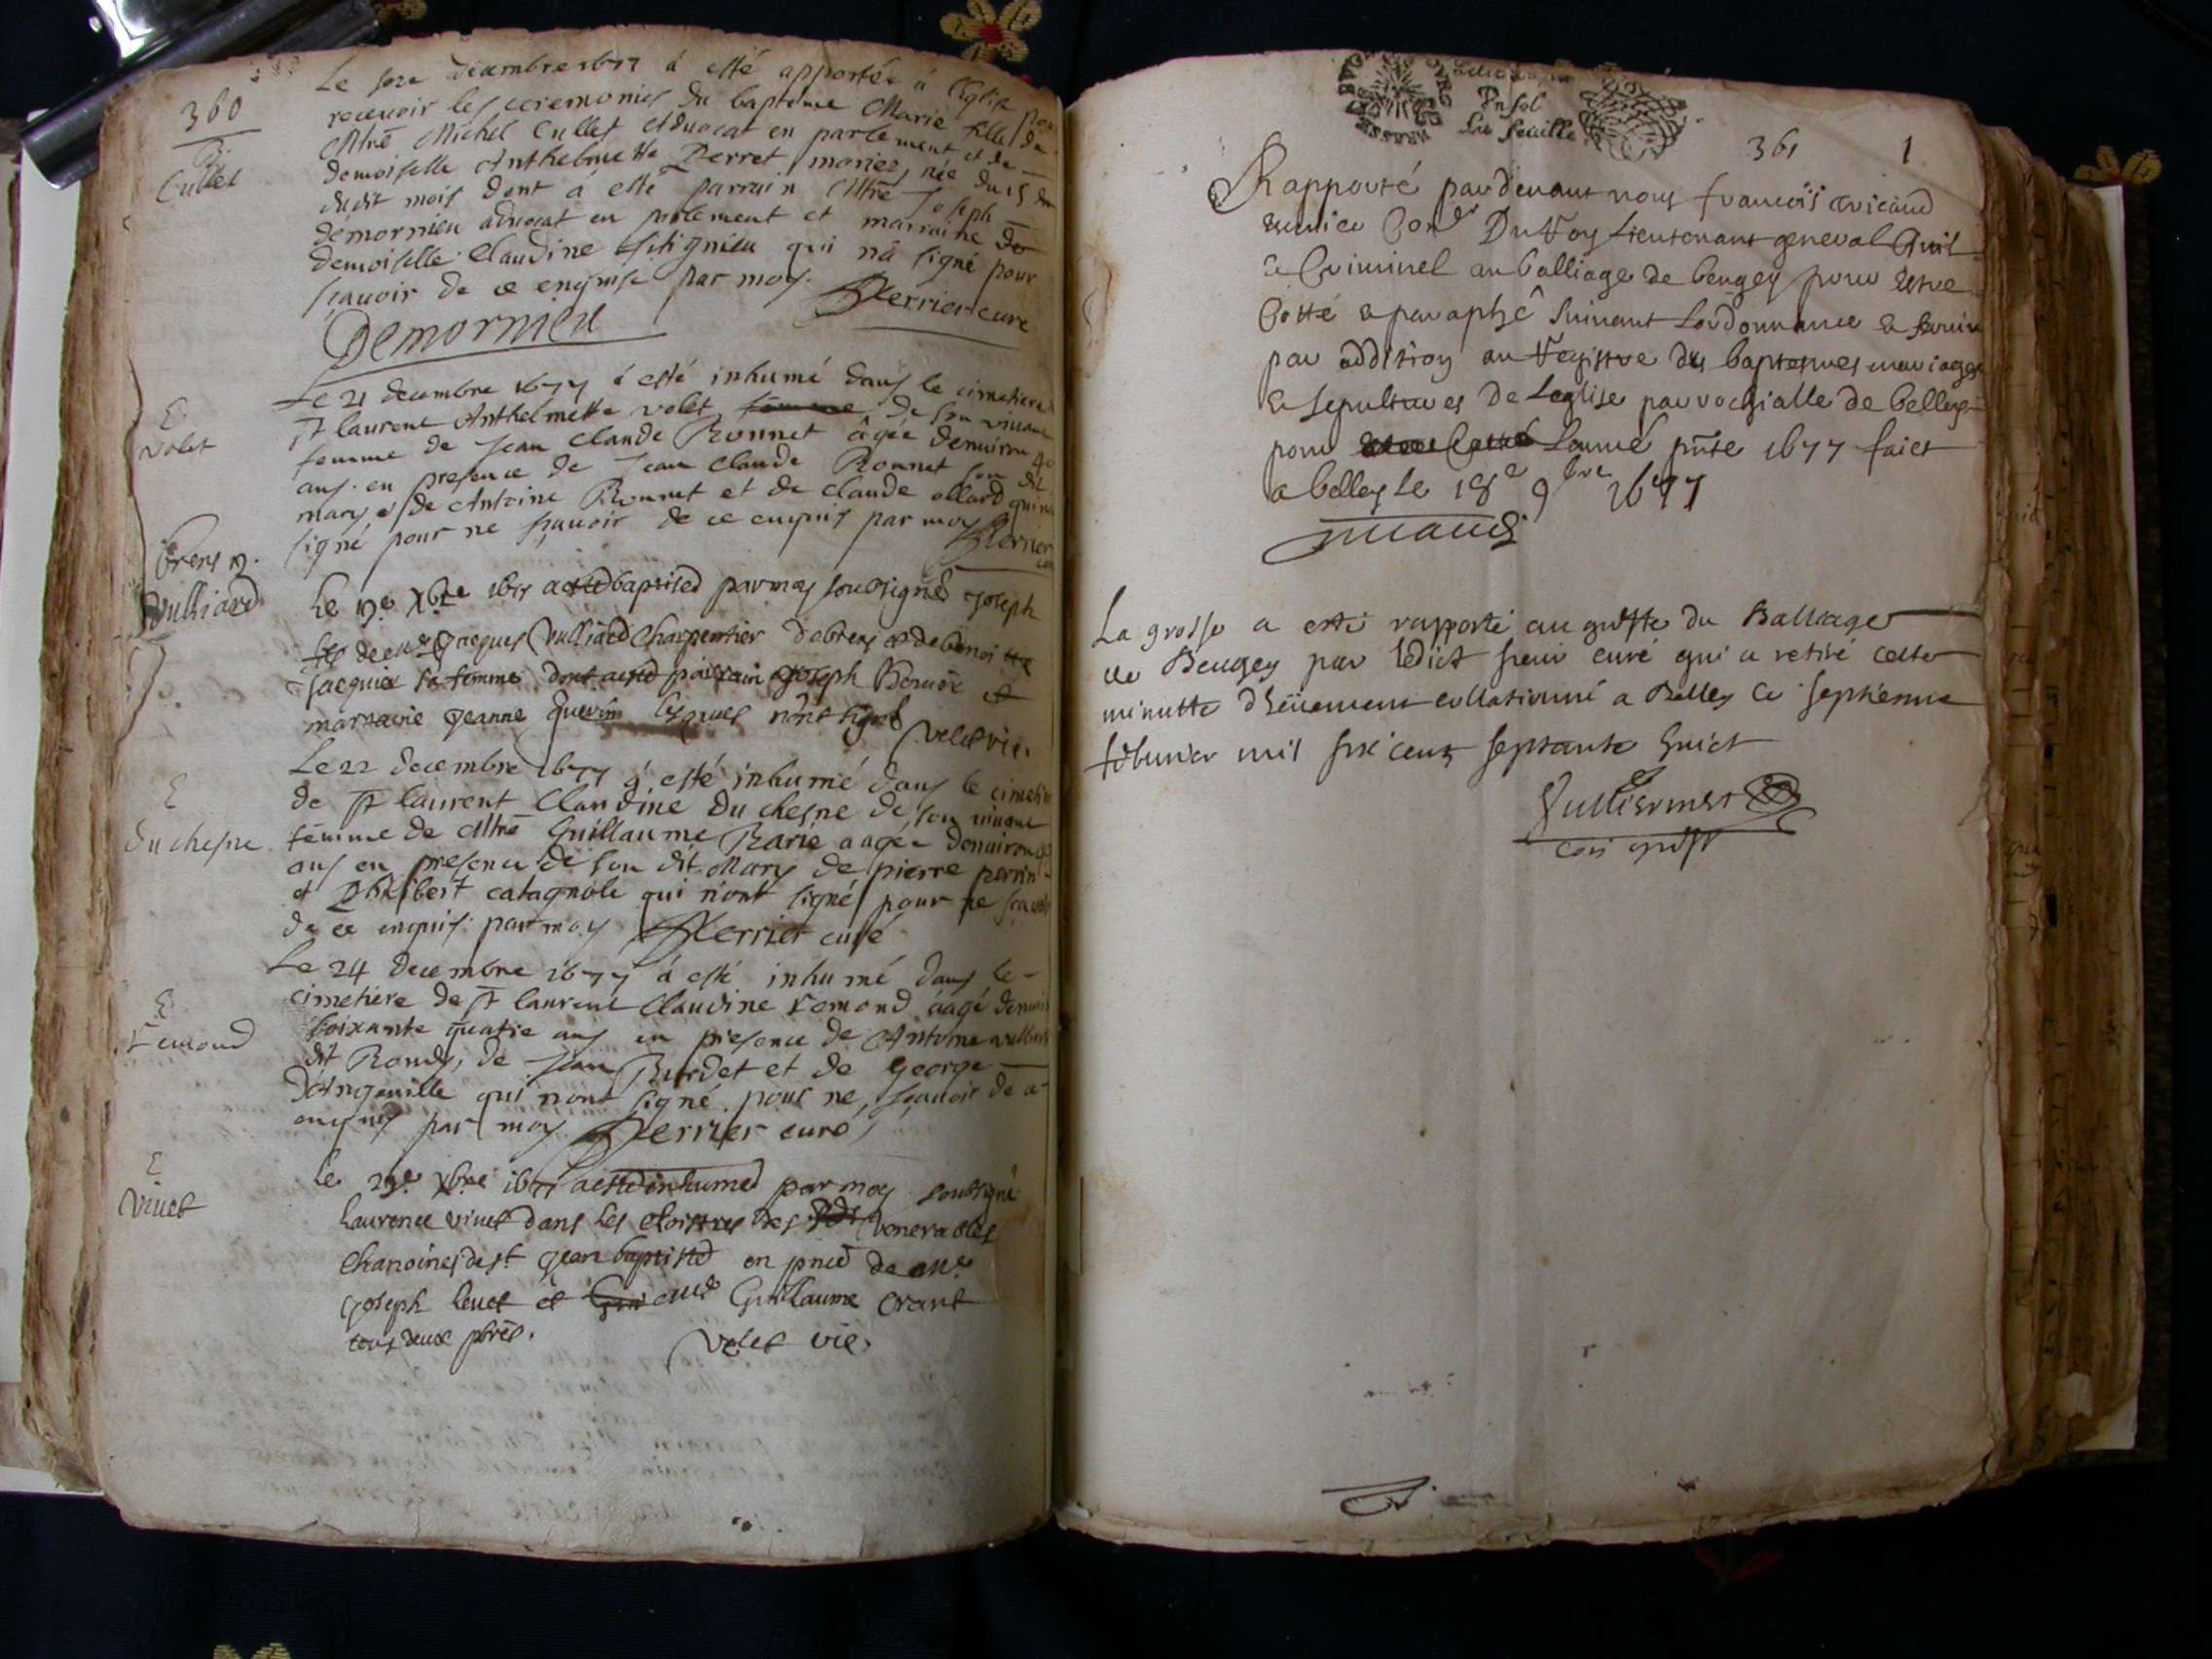 360
B.
Cullet
Le decembre 1677 á esté apportée á l'Eglise pour
recevoir les ceremonies du baptéme Marie fille de
Mtre Michel Cullet Advocat en parlement et de
demoiselle Anthelmette Perret mariez, née du 15 du
dudit mois dont á esté parrain Mtre Joseph
demornieu advocat en parlement et marraine de
demoiselle Claudine qui n'a signé pour
sçauoir de ce enquise par moy. Perrier curé
Demornieu
E.
Volet
Le 21 decembre 1677 á esté inhumé dans le cimetiere
St laurent Anthelmette volet femme de son viuant
femme de Jean Claude Bonnet âgée denuiron 40
ans. en presence de Jean Claude Bonnet son dit
mary et de Antoine Bonnet et de Claude ollard qui
signé pour ne sçauoir de ce enquis par moy Perrier
Brens
Vulliard
Le Xbre 1677 a esté baptisé par moy soubsigné Joseph
fils de Jacques Vulliard Charpentier de brens et de benoitte
Jacquier sa femme dont a esté parrain Joseph et
marraine Jeanne lesquels n'ont signé
Volet vic.
E
du chesne
Le 22 decembre 1677 á esté inhumé dans le cimetiere
de St laurent Claudine Du chesne de son viuant
femme de Mtre Guillaume Barie aagée denuiron
ans en presence de son dit Mary de pierre perrin
et Philibert catagnole qui n'ont signé pour ne scauoir
de ce enquis par moy Perrier curé
E
remond
Le 24 decembre 1677 á esté inhumé dans le
cimetiere de St laurent Claudine remond áagé denuiron
soixante quatre ans en presence de Antoine
dit de Jean Burdet et de George
D'Angeuille qui n'ont signé pour ne sçauoir de ce
enquis par moy Perrier curé
E
Vinet
le Xbre 1677 a esté inhumé par moy soubsigné
Laurence vinet dans les cloistres des venerables
Chanoines de st Jean baptiste en pnce de Mre
Joseph leuet et Mre Guillaume Crant
tous deux pbres.
Volet vic.
Un sol
La feuille
361 1
Rapporté par deuant nous francois
Du Roy Lieutenant general Ciuil
& Criminel au balliage de beugey pour estre
Cotté & paraphé suiuant Lordonnance & seruir
par addition au Registre des baptesmes mariages
& sepultures de Leglise parrochialle de belley
pour Lannée pnte 1677 faict
a belley le 18e 9bre 1677
La grosse a esté rapporté au greffe du Balliage
de Beugey par ledict sieur curé qui a retiré cette
minutte dheüement collationné a Belley ce septiesme
feburier mil six cens septante huict
Vulliermet